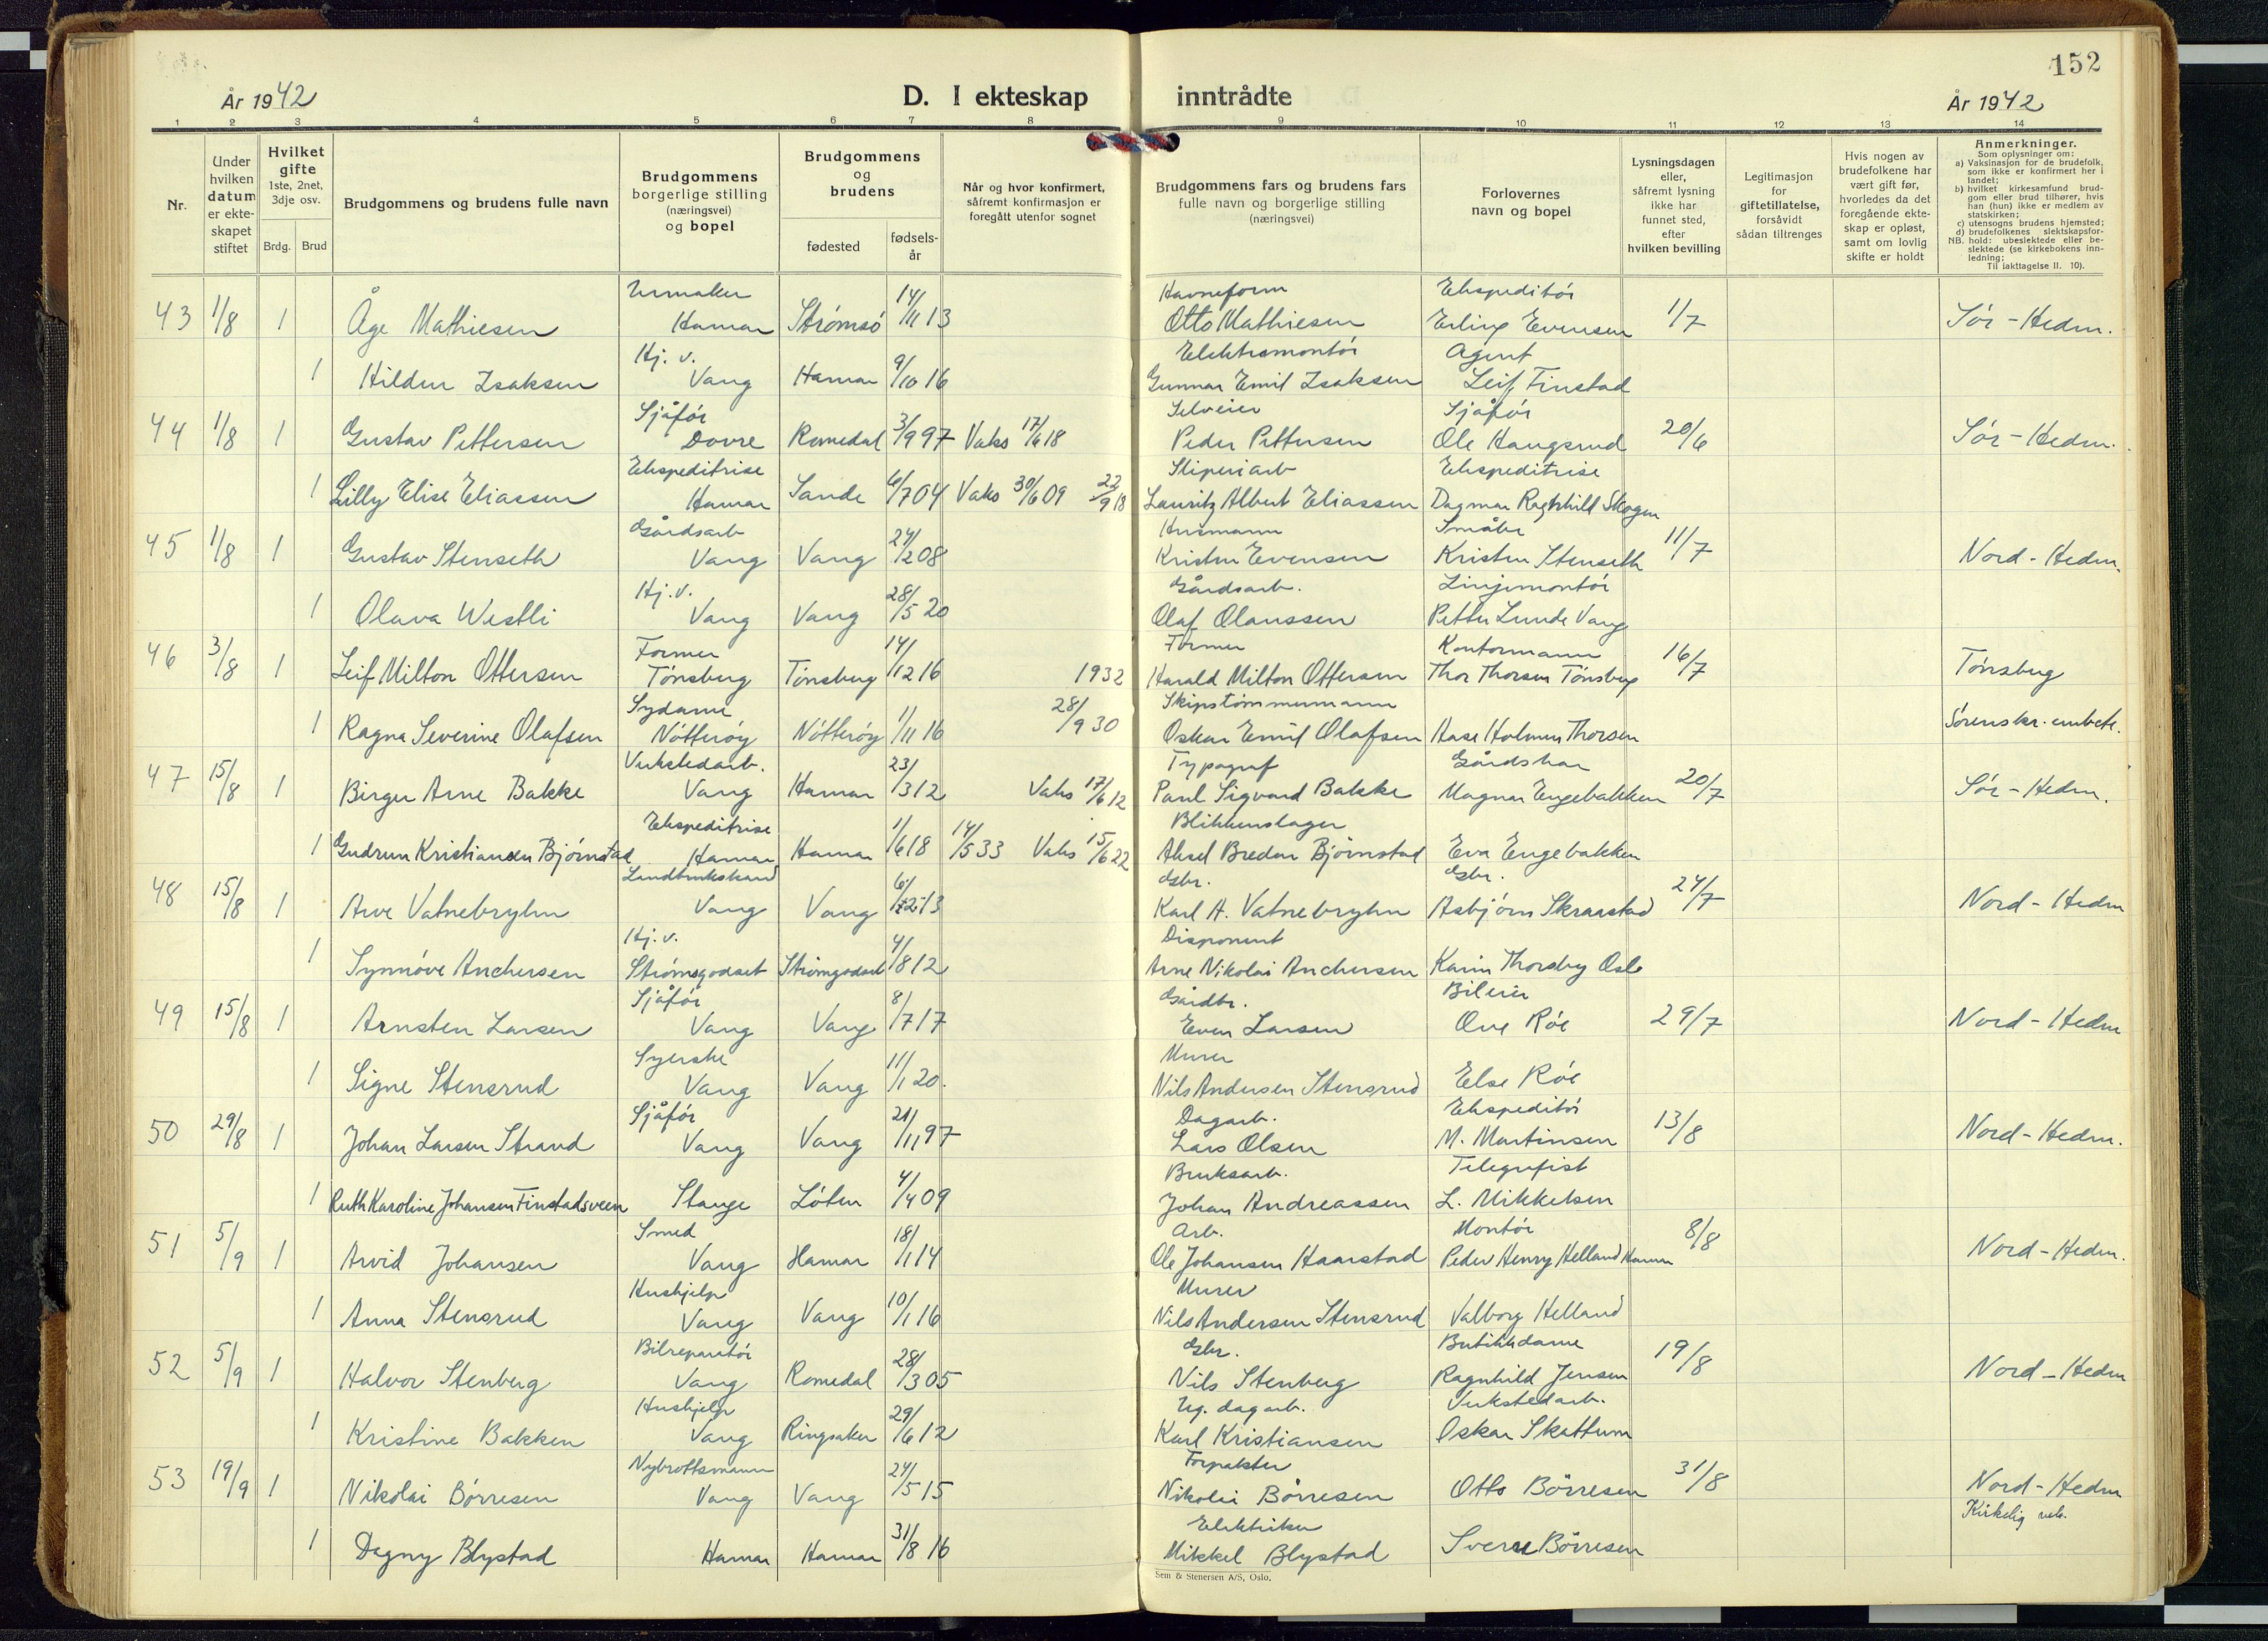 152
År 1942
D. I ekteskap inntrådte
År 1942
1 2 3 4 5 6 7 8 9 10 11 12 13 14
Nr.
Under hvilken datum er ekte-skapet stiftet
Hvilket gifte 1ste, 2net, 3dje osv.
Brdg. Brud
Brudgommens og brudens fulle navn
Brudgommens borgerlige stilling (næringsvei) og bopel
Brudgommens og brudens
fødested
fødsels-år
Når og hvor konfirmert, såfremt konfirmasjon er foregått utenfor sognet
Brudgommens fars og brudens fars fulle navn og borgerlige stilling (næringsvei)
Forlovernes navn og bopel
Lysningsdagen eller, såfremt lysning ikke har funnet sted, efter hvilken bevilling
Legitimasjon for giftetillatelse, forsåvidt sådan tiltrenges
Hvis nogen av brudefolkene har vært gift før, hvorledes da det foregående ekte-skap er opløst, samt om lovlig skifte er holdt
Anmerkninger.
Som oplysninger om:
a) Vaksinasjon for de brudefolk, som ikke er konfirmert her i landet;
b) hvilket kirkesamfund brud-gom eller brud tilhører, hvis han (hun) ikke er medlem av statskirken;
c) utensogns brudens hjemsted;
d) brudefolkenes slektskapsfor-hold: ubeslektede eller be-slektede (se kirkebokens inn-ledning;
NB. Til iakttagelse II. 10).
Urmaker 14/ Havneform Ekspeditör
43 1/8 1 Åge Mathiesen Hamar Strømsö 14/11 13 Otto Mathiesen Erling Evensen 1/7 Sör-Hedm.
Hj. v. Elektromontör Agent
1 Hildur Isaksen Vang Hamar 9/10 16 Gunnar Emil Isaksen Leif Finstad
Sjåför Selveier Sjåför
44 1/8 1 Gustav Pettersen Dovre Romedal 3/9 97 Vaks 17/6 18 Peder Pettersen Ole Haugsrud 20/6 Sör-Hedm.
Ekspeditrise Sliperiarb Ekspeditrise
1 Lilly Elise Eliassen Hamar Sande 6/7 04 Vaks 30/6 09 22/9 18 Lauritz Albert Eliassen Dagmar Ragnhild Skogen
Gårdsarb Husmann Småbr
45 1/8 1 Gustav Stenseth Vang Vang 24/2 08 Kristen Evensen Kristen Stenseth 11/7 Nord-Hedm.
Hj. v. Gårdsarb. Linjemontör
1 Olava Westli Vang Vang 28/5 20 Olaf Olaussen Petter Lunde Vang
Former Former Kontormann
46 3/8 1 Leif Milton Ottersen Tönsberg Tönsberg 14/12 16 1932 Harald Milton Ottersen Thor Thorsen Tönsberg 16/7 Tönsberg
Sydame Skipstömmermann
1 Ragna Severine Olafsen Nötteröy Nötteröy 1/11 16 28/9 30 Oskar Emil Olafsen Aase Holmen Thorsen Sorenskr. embete.
Verkstedarb. Typograf Gårdskar
47 15/8 1 Birger Arne Bakke Vang Hamar 23/3 12 Vaks 17/6 12 Paul Sigvard Bakke Magnar Engebakken 20/7 Sör-Hedm.
Ekspeditrise Blikkenslager
1 Gudrun Kristiansen Bjørnstad Hamar Hamar 1/6 18 14/5 33 Vaks 15/6 22 Aksel Bredar Bjørnstad Eva Engebakken
Landbrukskand Gbr. Gbr.
48 15/8 1 Arve Vatnebryhn Vang Vang 6/12 13 Karl A. Vatnebryhn Asbjørn Skraastad 24/7 Nord-Hedm
Hj. v. Disponent
1 Synnöve Anchersen Strömsgodset Strömsgodset 4/8 12 Arne Nikolai Anchersen Karin Thorsby Oslo
Sjåför Gårdbr. Bileier
49 15/8 1 Arnsten Larsen Vang Vang 8/7 17 Even Larsen Ove Röe 29/7 Nord-Hedm
Syerske Murer
1 Signe Stensrud Vang Vang 11/1 20. Nils Andersen Stensrud Else Röe
Sjåför Dagarb. Ekspeditör
50 29/8 1 Johan Larsen Strand Vang Vang 21/11 97 Lars Olsen M. Martinsen 13/8 Nord-Hedm.
Bruksarb. Telegrafist
1 Ruth Karoline Johansen Finstadsveen Stange Löten 4/4 09 Johan Andreassen L. Mikkelsen
Smed Arb. Montör
51 5/9 1 Arvid Johansen Vang Hamar 18/1 14 Ole Johansen Haarstad Peder Henry Helland Hamar 8/8 Nord-Hedm.
Hushjelp Murer
1 Anna Stensrud Vang Vang 10/1 16 Nils Andersen Stensrud Valborg Helland
Bilreparatör Gbr. Butikkdame
52 5/9 1 Halvor Stenberg Vang Romedal 28/3 05 Nils Stenberg Ragnhild Jensen 19/8 Nord-Hedm
Hushjelp dagarb. Verkstedarb.
1 Kristine Bakken Vang Ringsaker 29/6 12 Karl Kristiansen Oskar Skattum
Nybrottsmann Forpakter
53 19/9 1 Nikolai Börresen Vang Vang 24/5 15 Nikolai Börresen Otto Börresen 31/8 Nord-Hedm
Elektriker Kirkelig vels.
1 Dagny Blystad Hamar Hamar 31/8 16 Mikkel Blystad Sverre Börresen
Sem & Stenersen A/S, Oslo.